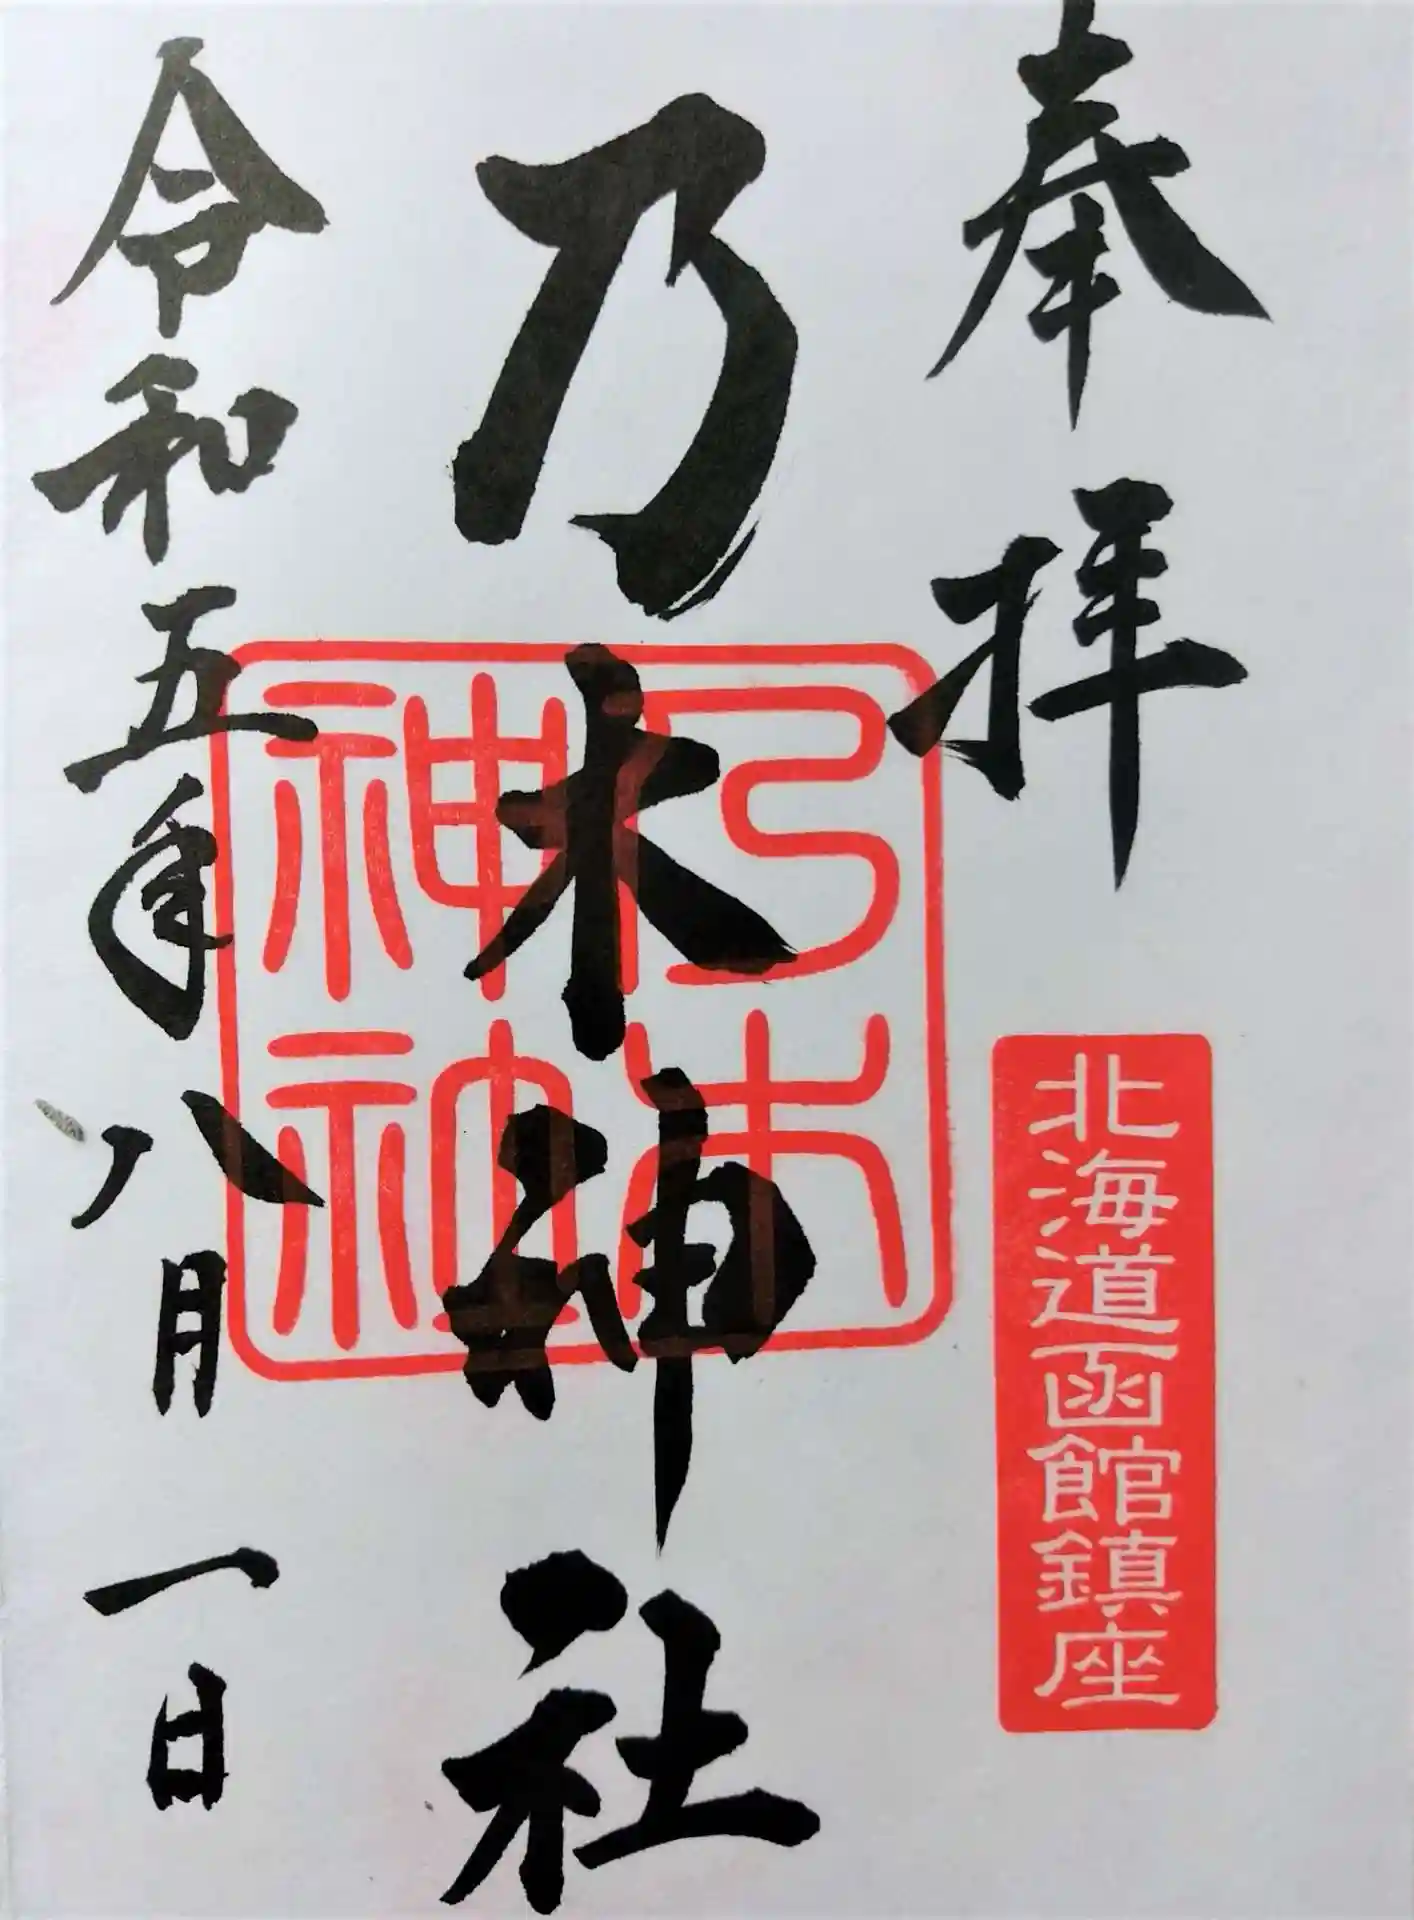 奉拝
北海道函館鎮座
乃木神社
乃木神社
令和五年八月一日